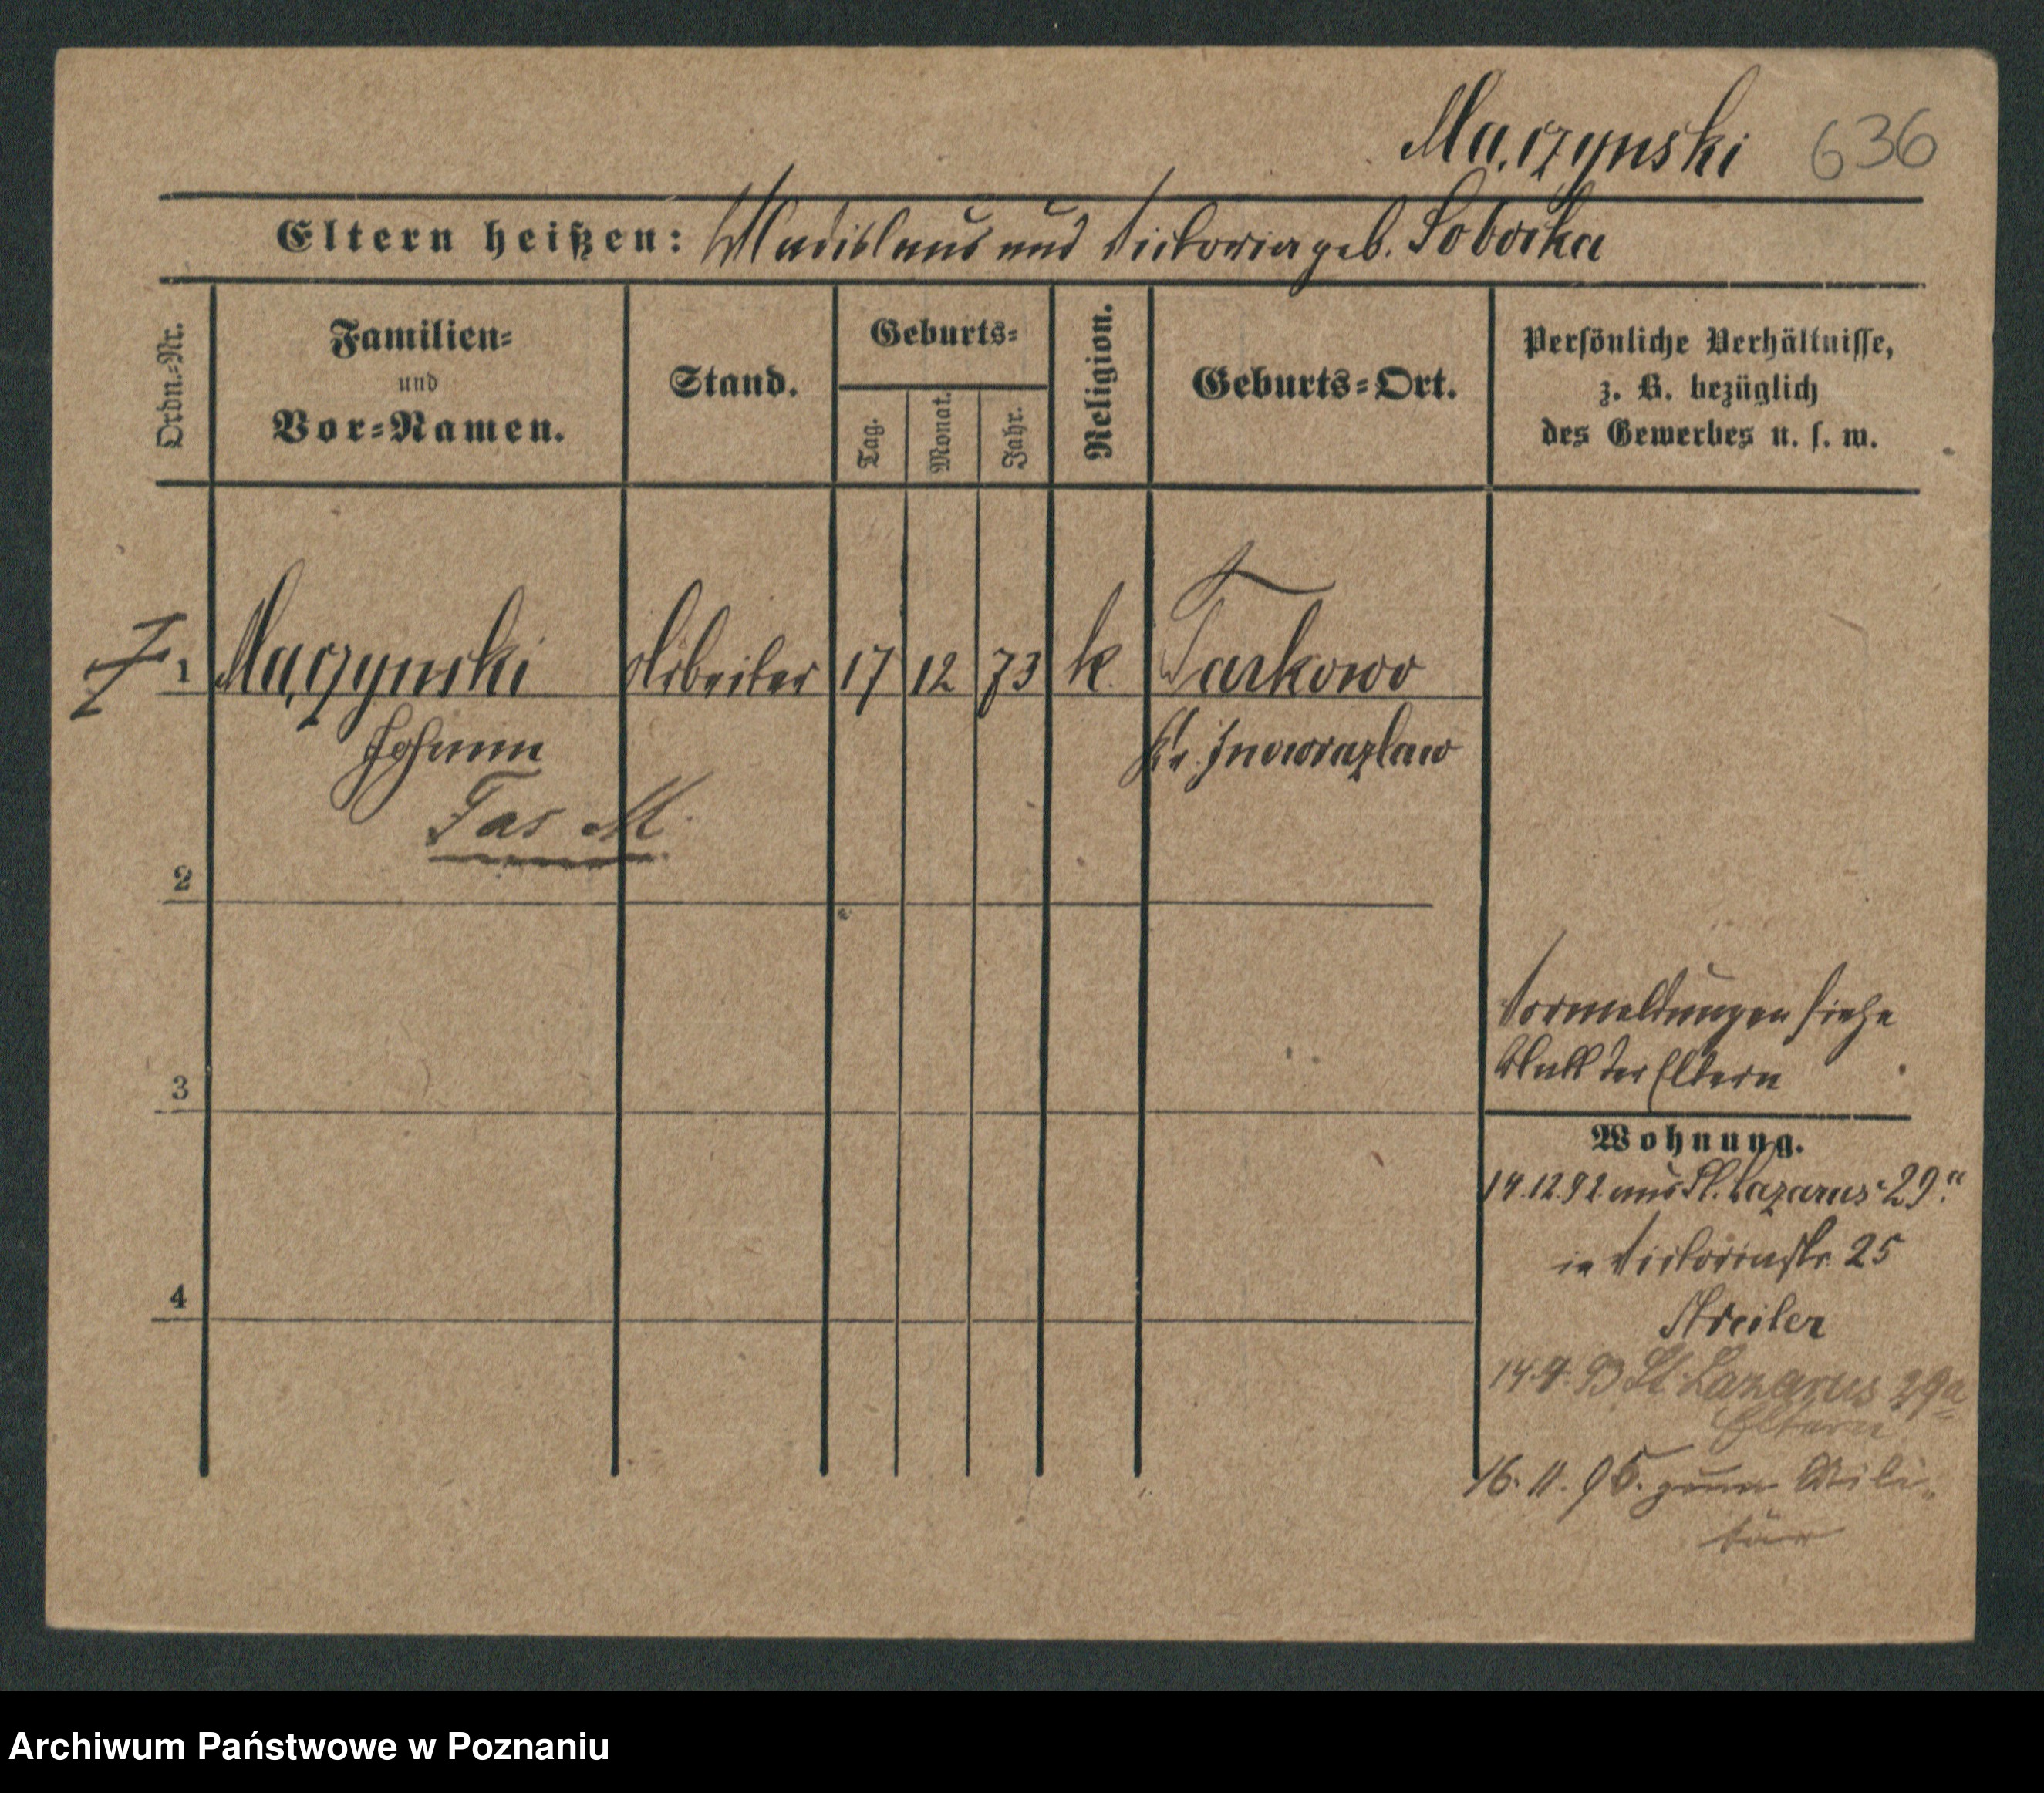 Mączynski 636
Eltern heißen: Wladislaus und Victoria geb. Sobocka
Ordn.-Nr.
Familien=
und
Vor=Namen.
Stand.
Geburts=
Tag.
Monat.
Jahr.
Religion.
Geburts=Ort.
Persönliche Verhältnisse,
z. B. bezüglich
des Gewerbes u. s. w.
1 Mączynski Arbeiter 17 12 73 k. Tarkowo
Johann Kr. Inowrazlaw
Tas M.
2
Vormeldungen siehe
Blatt der Eltern
3
Wohnung.
14.12.92 aus St. Lazarus 29a
in Victoriastr. 25
4
14.4.93 St. Lazarus 29a
Eltern
16.11.95. zum Mili-
tär
Archiwum Państwowe w Poznaniu